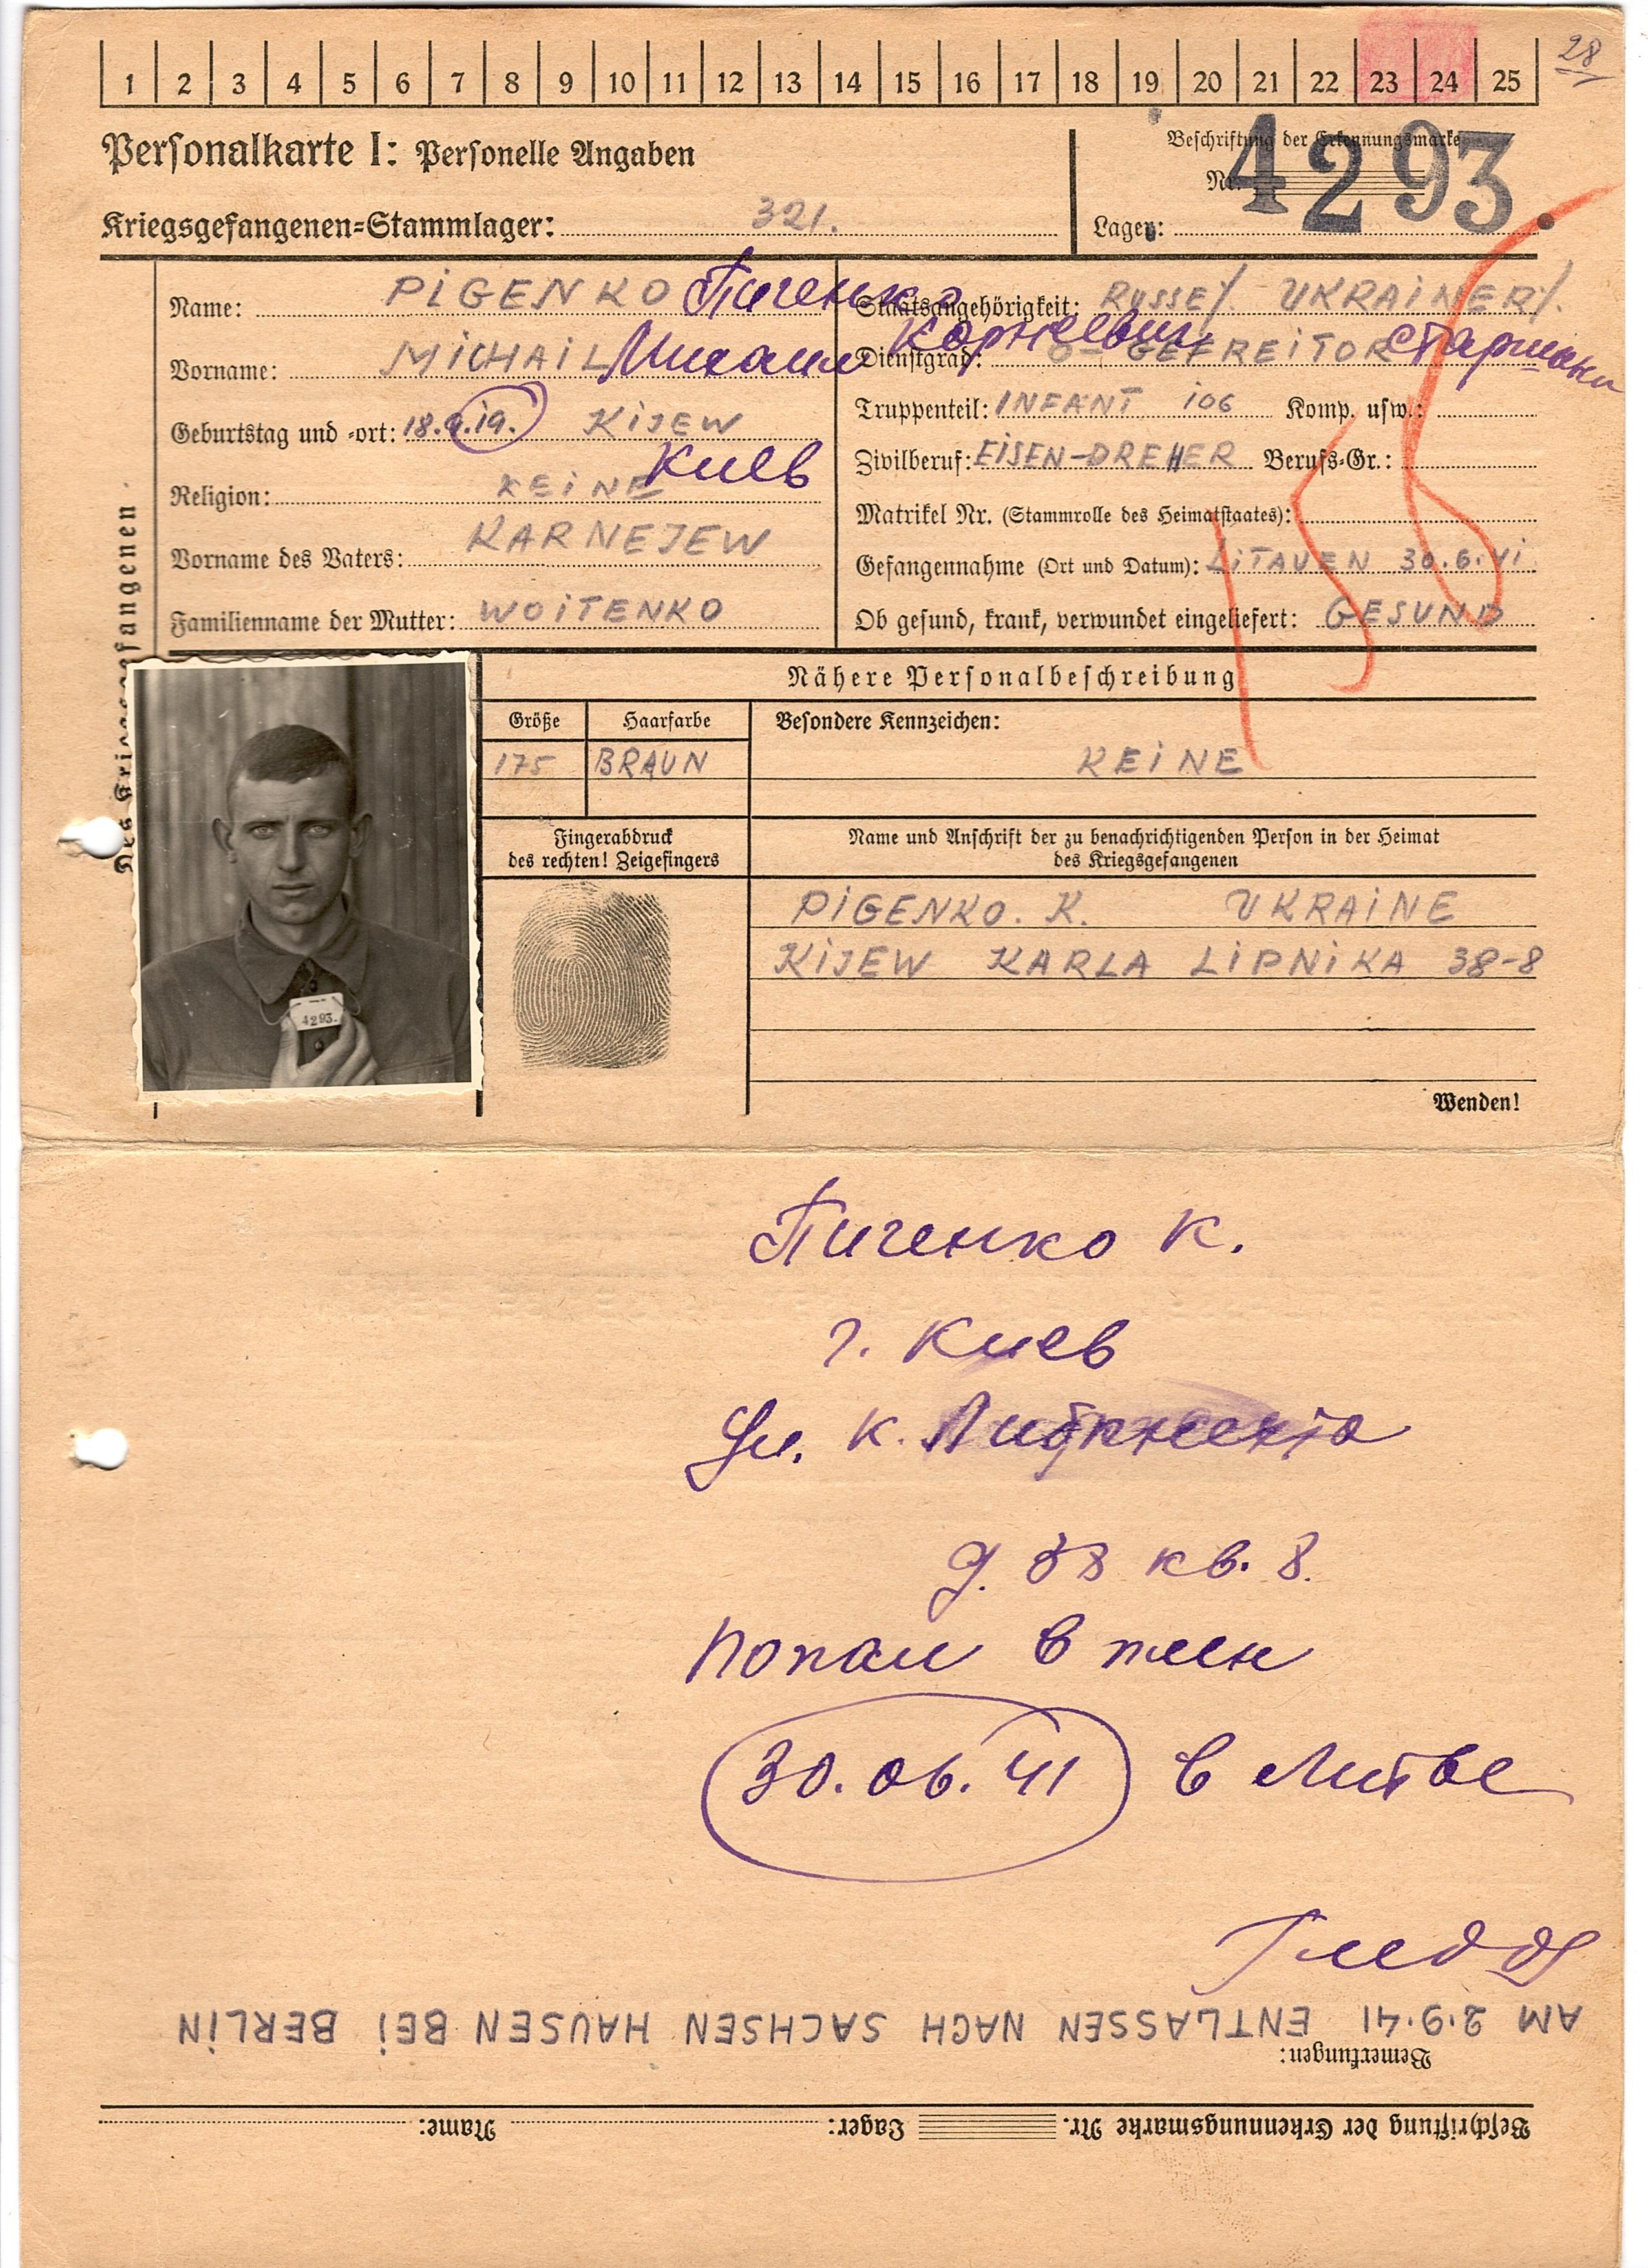 1 2 3 4 5 6 7 8 9 10 11 12 13 14 15 16 17 18 19 20 21 22 23 24 25
28
Personalkarte I: Personelle Angaben
Beschriftung der Erkennungsmarke
Nr. 4293.
Kriegsgefangenen-Stammlager: 321.
Lager:
Name: PIGENKO Пигенко
Staatsangehörigkeit: RUSSE/. UKRAINER/.
Корнеевич
Vorname: MICHAIL Михаил
Dienstgrad: GEFREITOR
Geburtstag und -ort: 18.9.19. KIJEW
Киев
Truppenteil: INFANT 106 Komp. usw.:
Zivilberuf: EISEN-DREHER Berufs-Gr.:
Religion: KEINE
Matrikel Nr. (Stammrolle des Heimatstaates):
Vorname des Vaters: KARNEJEW
Gefangennahme (Ort und Datum): LITAUEN 30.6.41
Familienname der Mutter: WOITENKO
Ob gesund, krank, verwundet eingeliefert: GESUND
des Kriegsgefangenen
4293.
Nähere Personalbeschreibung
Größe Haarfarbe Besondere Kennzeichen:
175 BRAUN KEINE
Fingerabdruck
des rechten! Zeigefingers
Name und Anschrift der zu benachrichtigenden Person in der Heimat
des Kriegsgefangenen
PIGENKO. K. UKRAINE
KIJEW KARLA LIPNIKA 38-8
Wenden!
Пигенко К.
г. Киев
Ул. К. Либкнехта
д. 38 кв. 8.
Попал в плен
30.06.41 в Литве
AM 2.9.41 ENTLASSEN NACH SACHSEN HAUSEN BEI BERLIN
Bemerkungen:
Beschriftung der Erkennungsmarke Nr. Lager: Name: